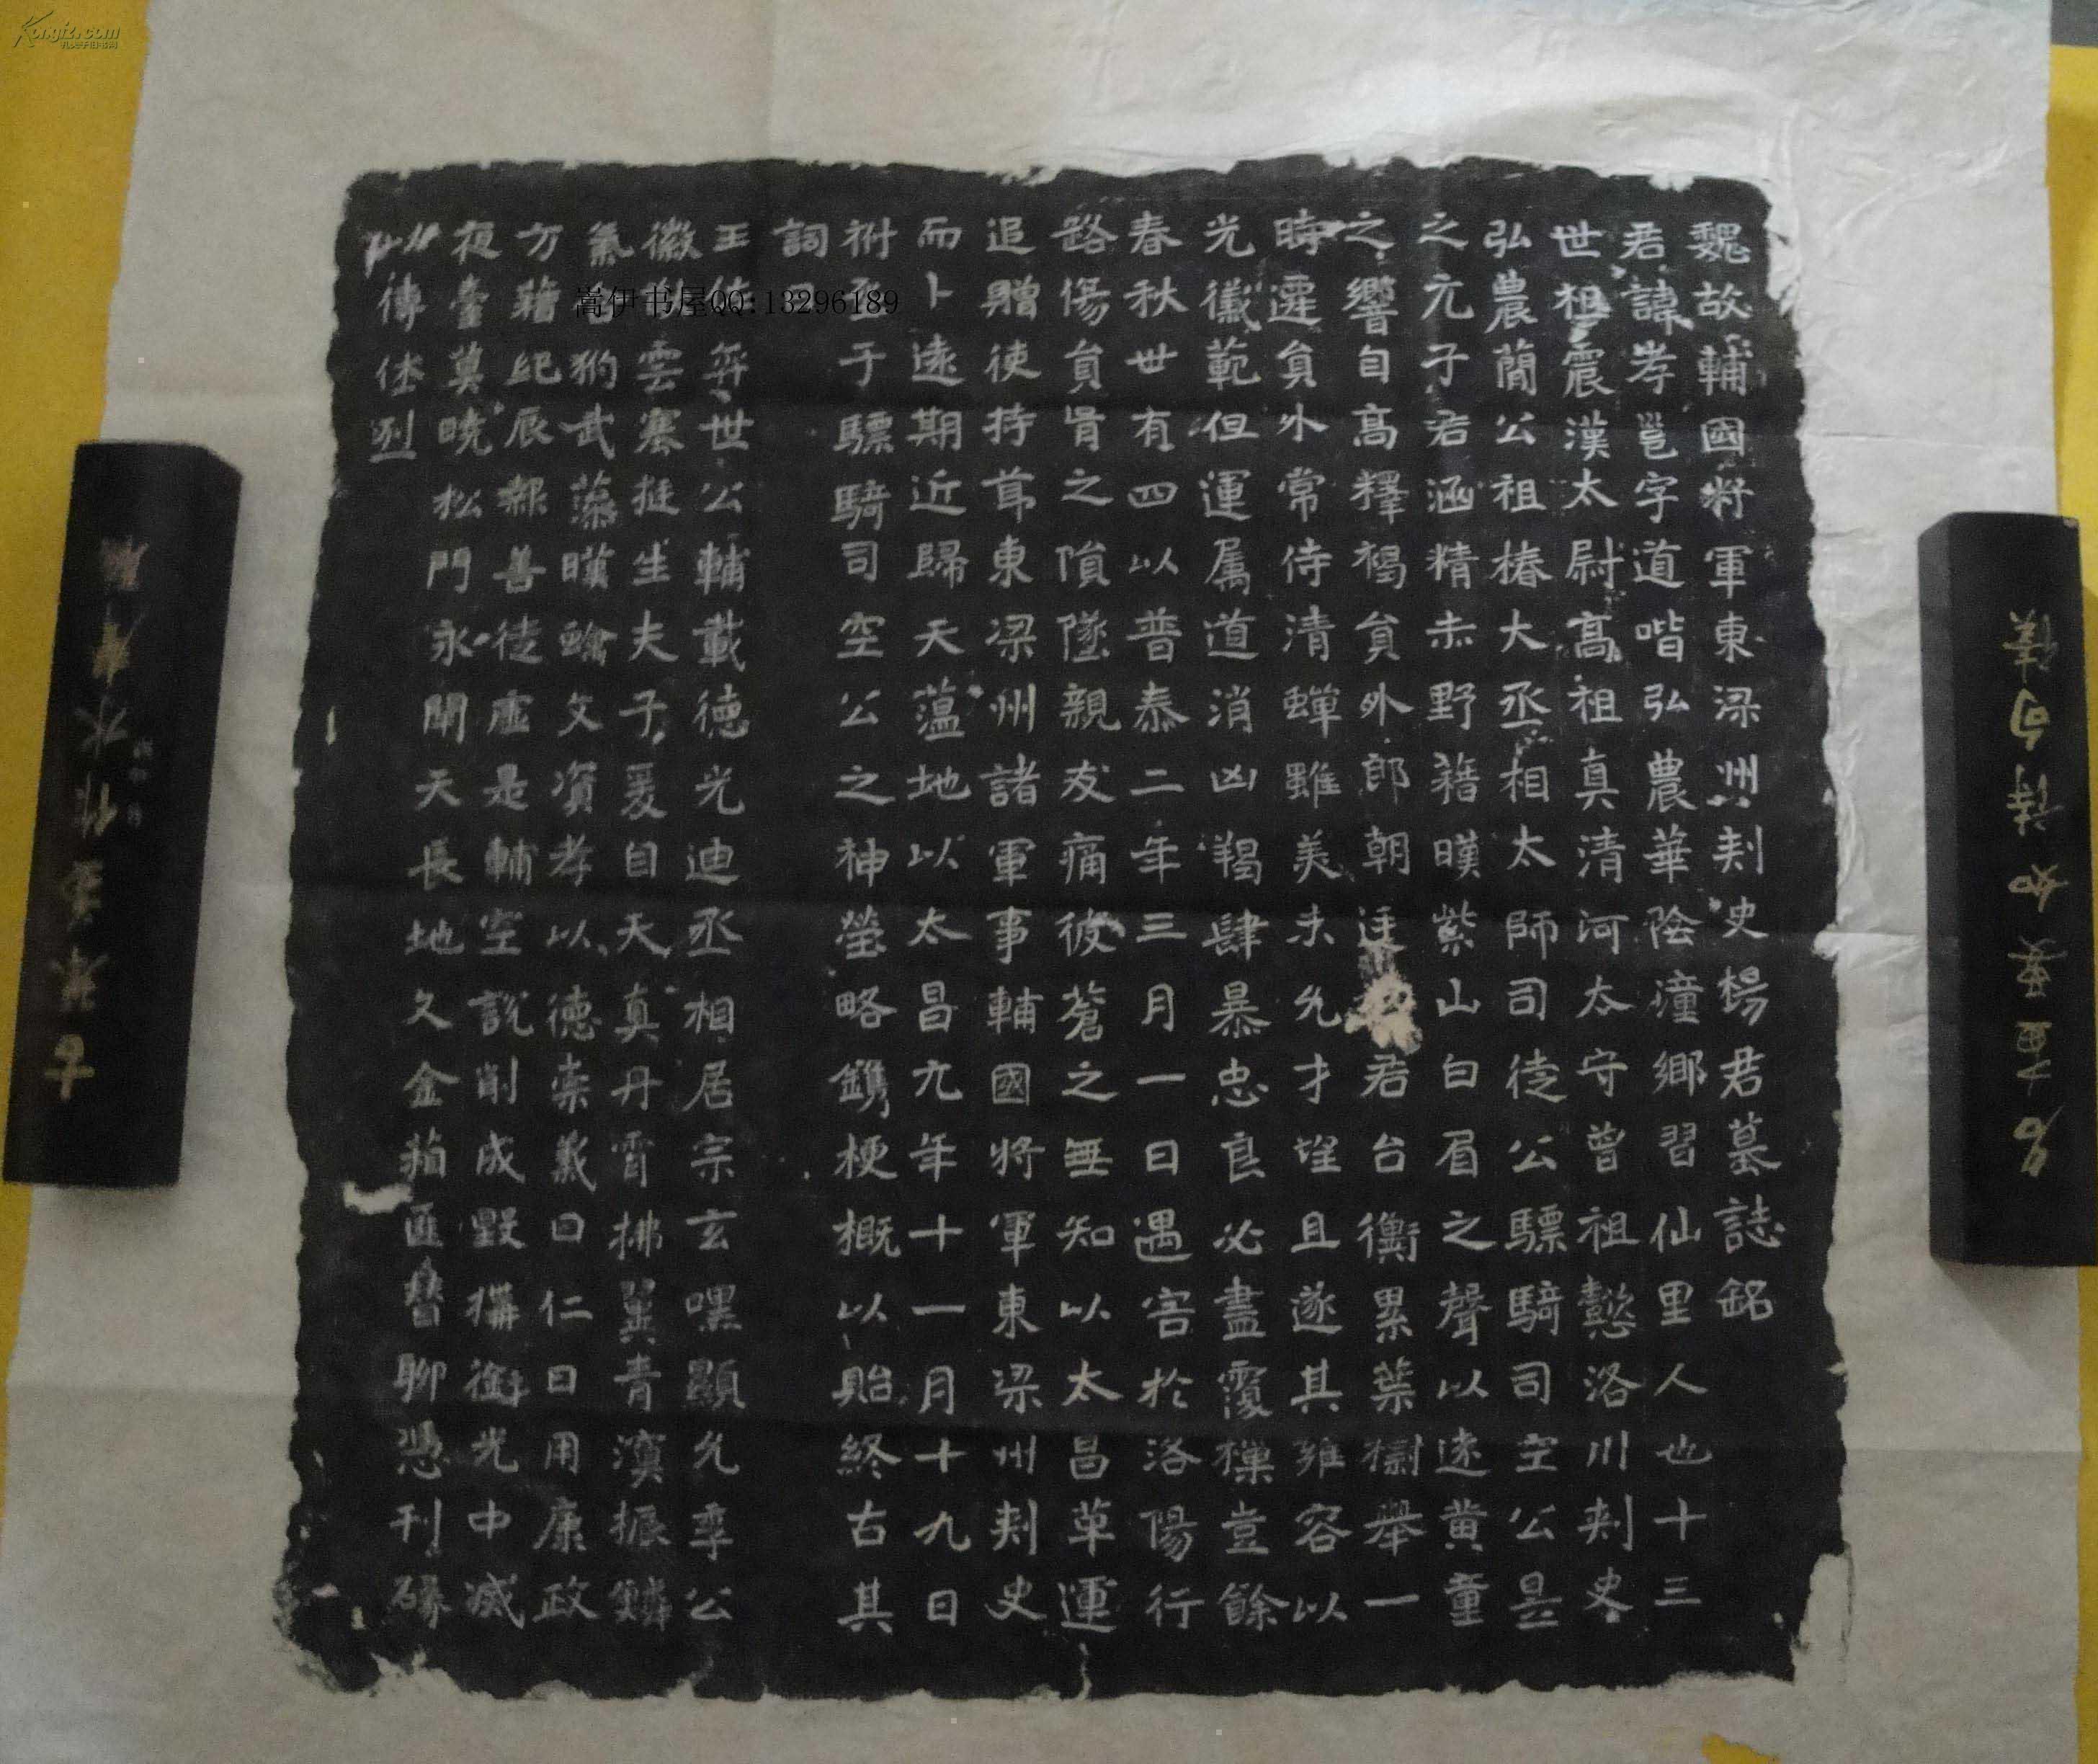 魏故輔國將軍東梁州刾史楊君墓誌銘
君諱孝邕字道喈弘農華陰潼鄉習仙里人也十三
世祖震漢太尉高祖真清河太守曾祖懿洛川刾史
弘農蕳公祖椿大丞相太師司徒公驃騎司空公是
之元子君涵精赤野藉暎紫山白眉之聲以遠黄童
之響自高釋褐員外郎朝廷君台衡累葉樹舉一
時遷員外常侍清蟬雖美未允才望且遂其雍容以
光徽範但運属道消凶羯肆暴忠良必盡覆樔豈餘
春秋世有四以普泰二年三月一日遇害於洛陽行
路傷貟之隕墜親友痛彼蒼之無知以太昌草運
追贈使持莭東梁州諸軍事輔國將軍東梁州刾史
而卜遠期近歸天蕰地以太昌九年十一月十九日
祔于驃騎司空公之神塋略鐫梗概以貽終古其
詞
王弈世公輔載德光迪丞相居宗玄嘿顯允季公
徽雲騫挺生夫子爰自天真丹霄拂翼青溟振鱗
氣豹武藻暎文資孝以德崇義曰仁日用康政
方藉紀辰報善徒虛是輔空説削成毀構衡光中滅
夜臺莫曉松門永閇天長地久金匯聊憑刊
傳休烈
嵩伊书屋QQ:13296189
Kongfz.com
孔夫子旧书网